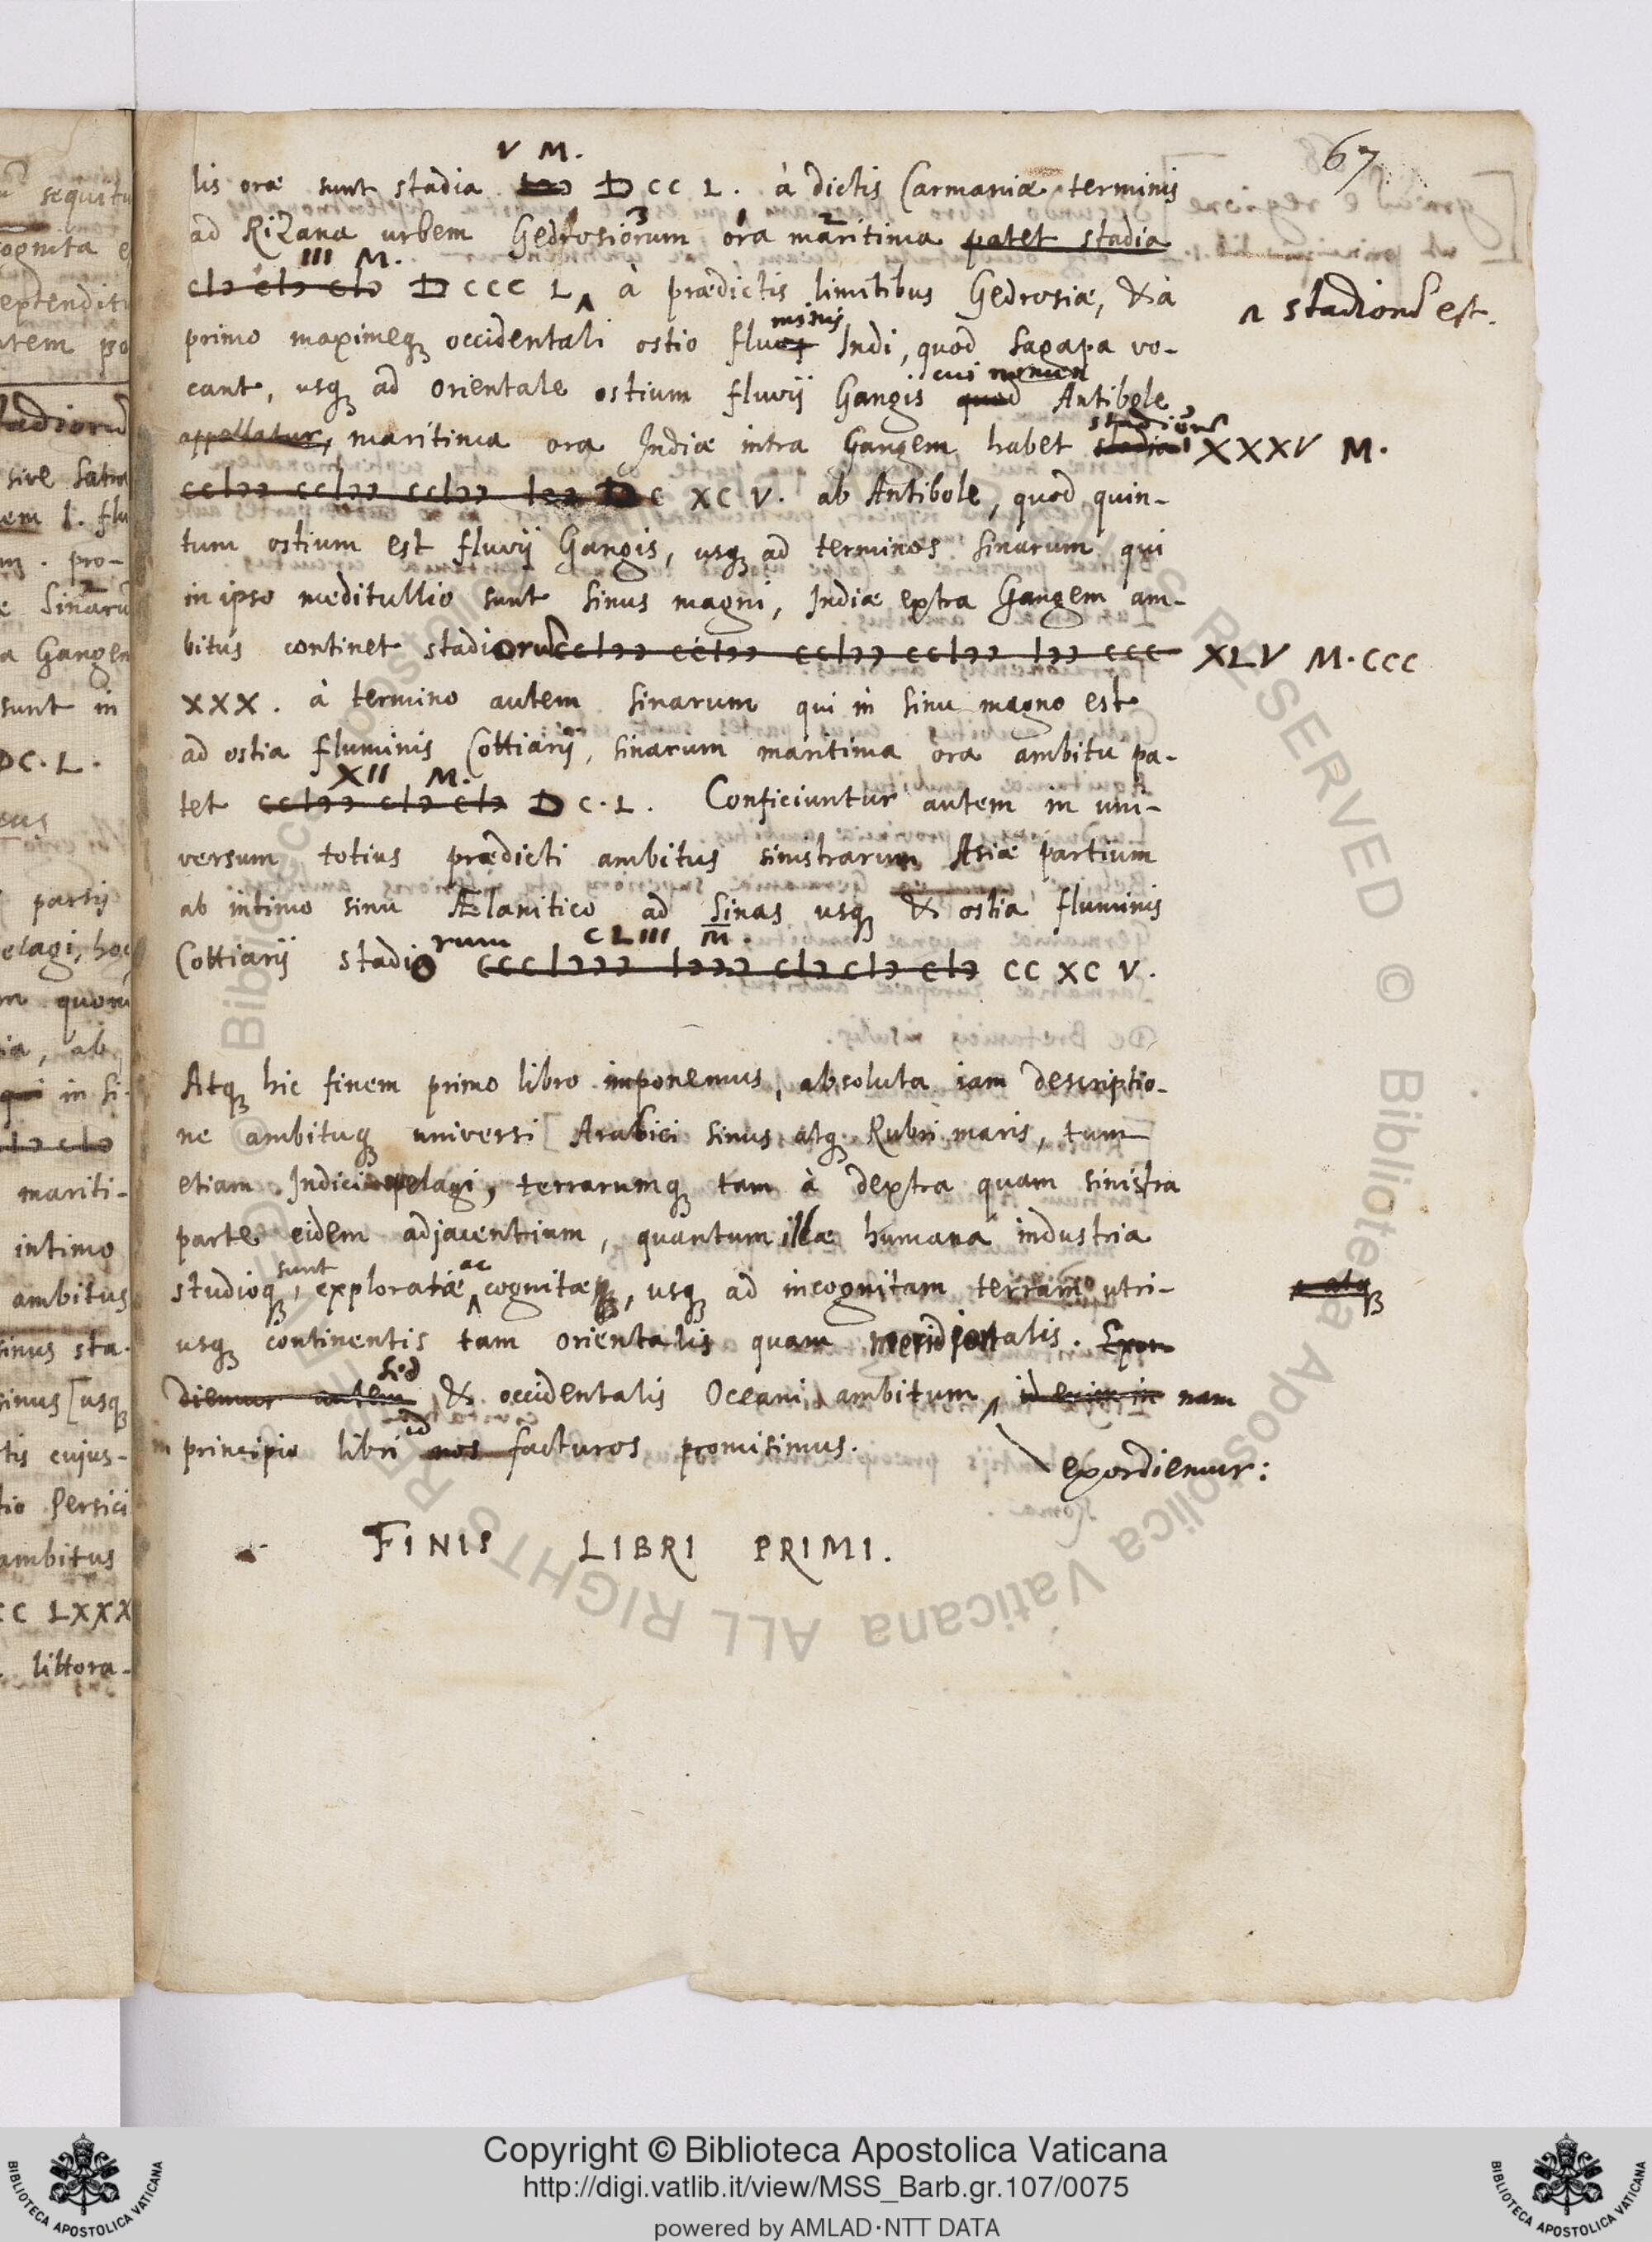 67
V M.
lis oræ sunt stadia Iↄↄ D CC L. à dictis Carmaniæ terminis
ad Rizana urbem Gedrosiorum ora maritima patet stadia
III M.
cIↄ cIↄ cIↄ D CCC L ʌ à prædictis limitibus Gedrosiæ, & à
ʌ stadiorũ est.
minis
primo maximeq; occidentali ostio fluvij Indi, quod Sagapa vo-
cui nomen
cant, usq; ad orientale ostium fluvij Gangis quod Antibole
stadiorũ
appellatur, maritima ora Indiæ intra Gangem habet stadia XXXV M.
ccIↄↄ ccIↄↄ ccIↄↄ Iↄↄ D C XC V. ab Antibole, quod quin-
tum ostium est fluvij Gangis, usq; ad terminos Sinarum qui
in ipso meditullio sunt Sinus magni, Indiæ extra Gangem am-
bitus continet stadiorũ ccIↄↄ ccIↄↄ ccIↄↄ ccIↄↄ Iↄↄ CCC XLV M. CCC
XXX. à termino autem Sinarum qui in sinu magno est
ad ostia fluminis Cottiarij, Sinarum maritima ora ambitu pa-
XII M.
tet ccIↄↄ cIↄ cIↄ D C. L. Conficiuntur autem in uni-
versum totius prædicti ambitus sinistrarum Asiæ partium
ab intimo sinu Ælanitico ad Sinas usq; & ostia fluminis
rum CLIII M.
Cottiarij stadio cccIↄↄↄ Iↄↄↄ cIↄ cIↄ cIↄ CC XC V.
Atq; hic finem primo libro imponemus, absoluta iam descriptio-
ne ambituq; universi [Arabici sinus atq; Rubri maris, tum
etiam Indici pelagi, terrarumq; tam à dextra quam sinistra
parte eidem adjacentium, quantum illæ humana industria
sunt ac
studioq;, exploratæ ʌ cognitæq;, usq; ad incognitam terram utri-
atq;
usq; continentis tam orientalis quam meridionalis. Exor-
Sed
diemur autem & occidentalis Oceani ambitum, ʌ id enim in nam
id
in principio libri nos facturos promisimus.
exordiemur:
FINIS LIBRI PRIMI.
Copyright © Biblioteca Apostolica Vaticana
http://digi.vatlib.it/view/MSS_Barb.gr.107/0075
powered by AMLAD·NTT DATA